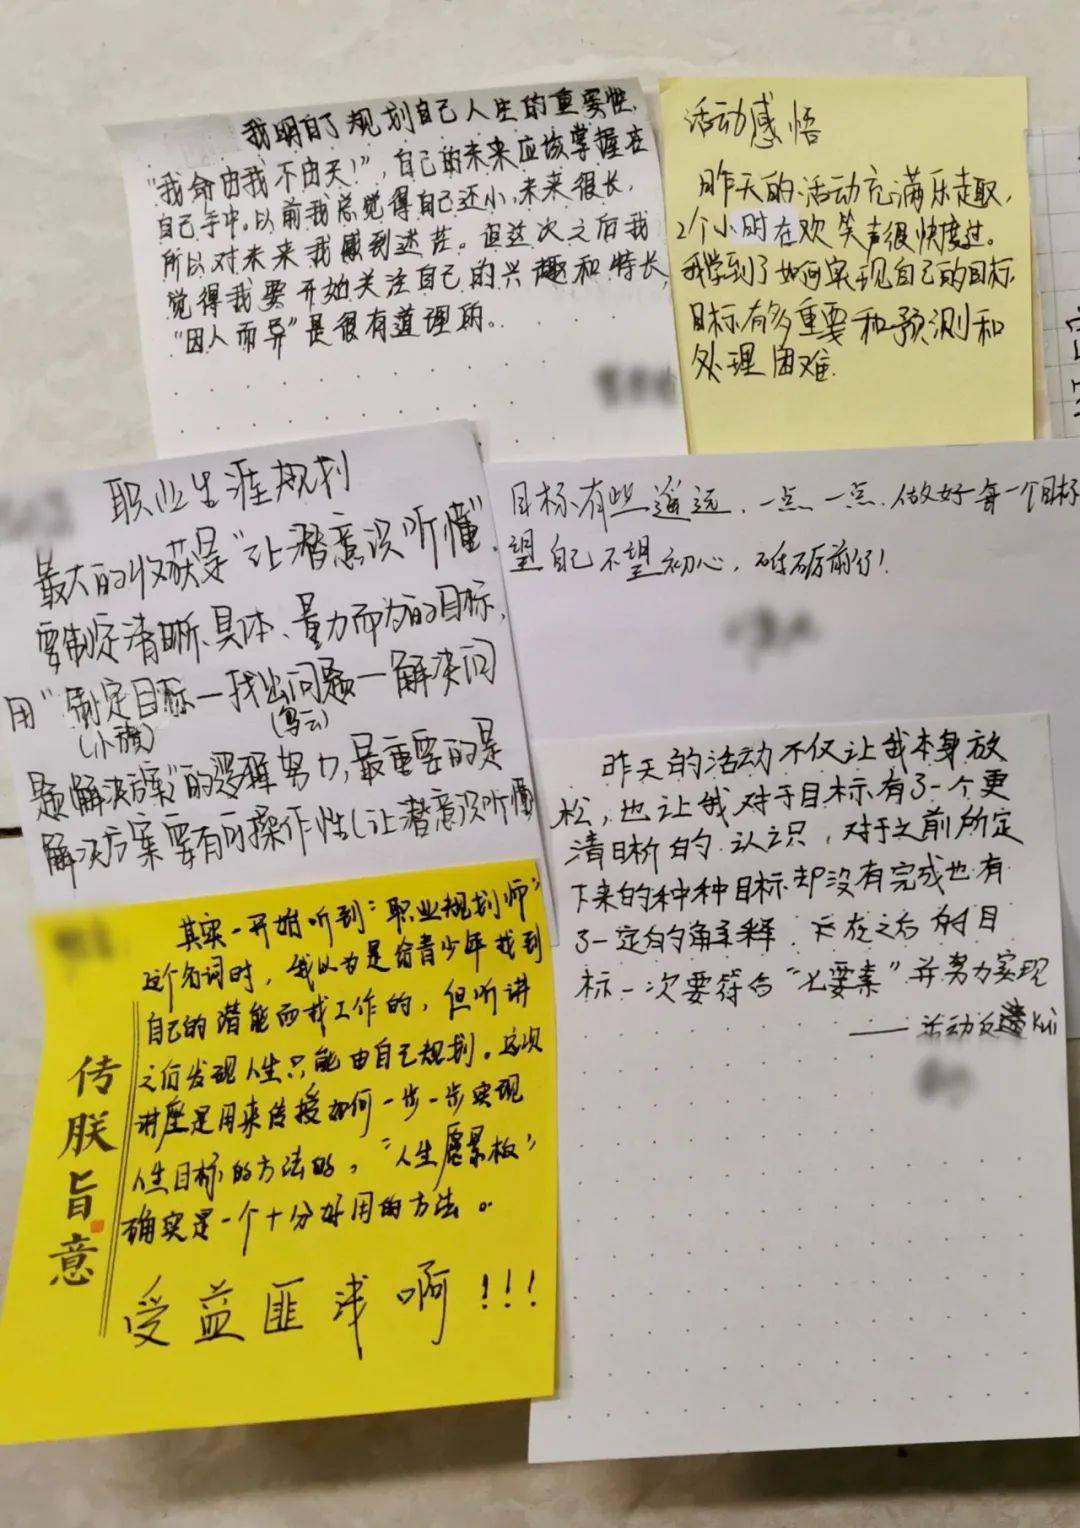 我明白了规划自己人生的重要性,
"我命由我不由天!",自己的未来应该掌握在
自己手中。以前我总觉得自己还小,未来很长,
所以对未来我感到迷茫。但这次之后我
觉得我要开始关注自己的兴趣和特长,
"因人而异"是很有道理的。
活动感悟
昨天的活动充满乐趣,
2个小时在欢笑声很快度过。
我学到了如何实现自己的目标
目标有多重要和预测和
处理困难.
职业生涯规划
最大的收获是"让潜意识听懂",
要制定清晰、具体、量力而为的目标,
用"制定目标一找出问题一解决问
(小旗)
题(解决方案)"的逻辑努力,最重要的是
解决方案要有可操作性(让潜意识听懂
目标有些遥远,一点一点,做好每一个目标
望自己不望初心,砥砺前行!
昨天的活动不仅让我本身放
松,也让我对于目标有了一个更
清晰的认识,对于之前所定
下来的种种目标却没有完成也有
了一定的解释.在之后的目
标一次要符合"七要素"并努力实现
——活动反馈
其实一开始听到"职业规划师"
这个名词时,我以为是给青少年找到
自己的潜能而找工作的,但听讲
之后发现人生只能由自己规划。这次
讲座是用来传授如何一步一步实现
人生目标的方法的,"人生愿景板"
确实是一个十分好用的方法。
受益匪浅啊!!!
传朕旨意